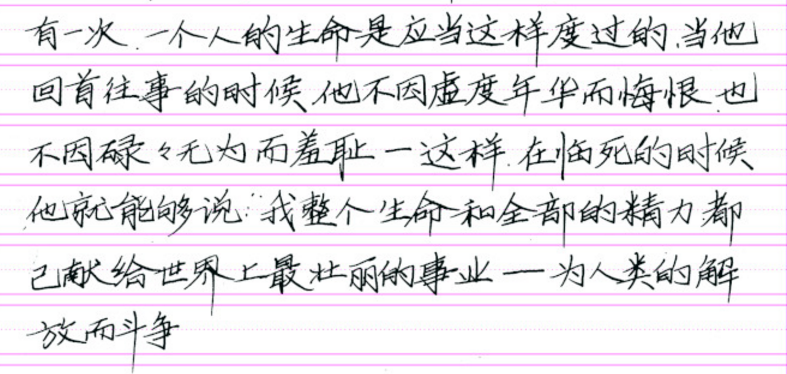 有一次.一个人的生命是应当这样度过的.当他
回首往事的时候他不因虚度年华而悔恨.也
不因碌々无为而羞耻一这样.在临死的时候
他就能够说:"我整个生命和全部的精力都
已献给世界上最壮丽的事业一为人类的解
放而斗争